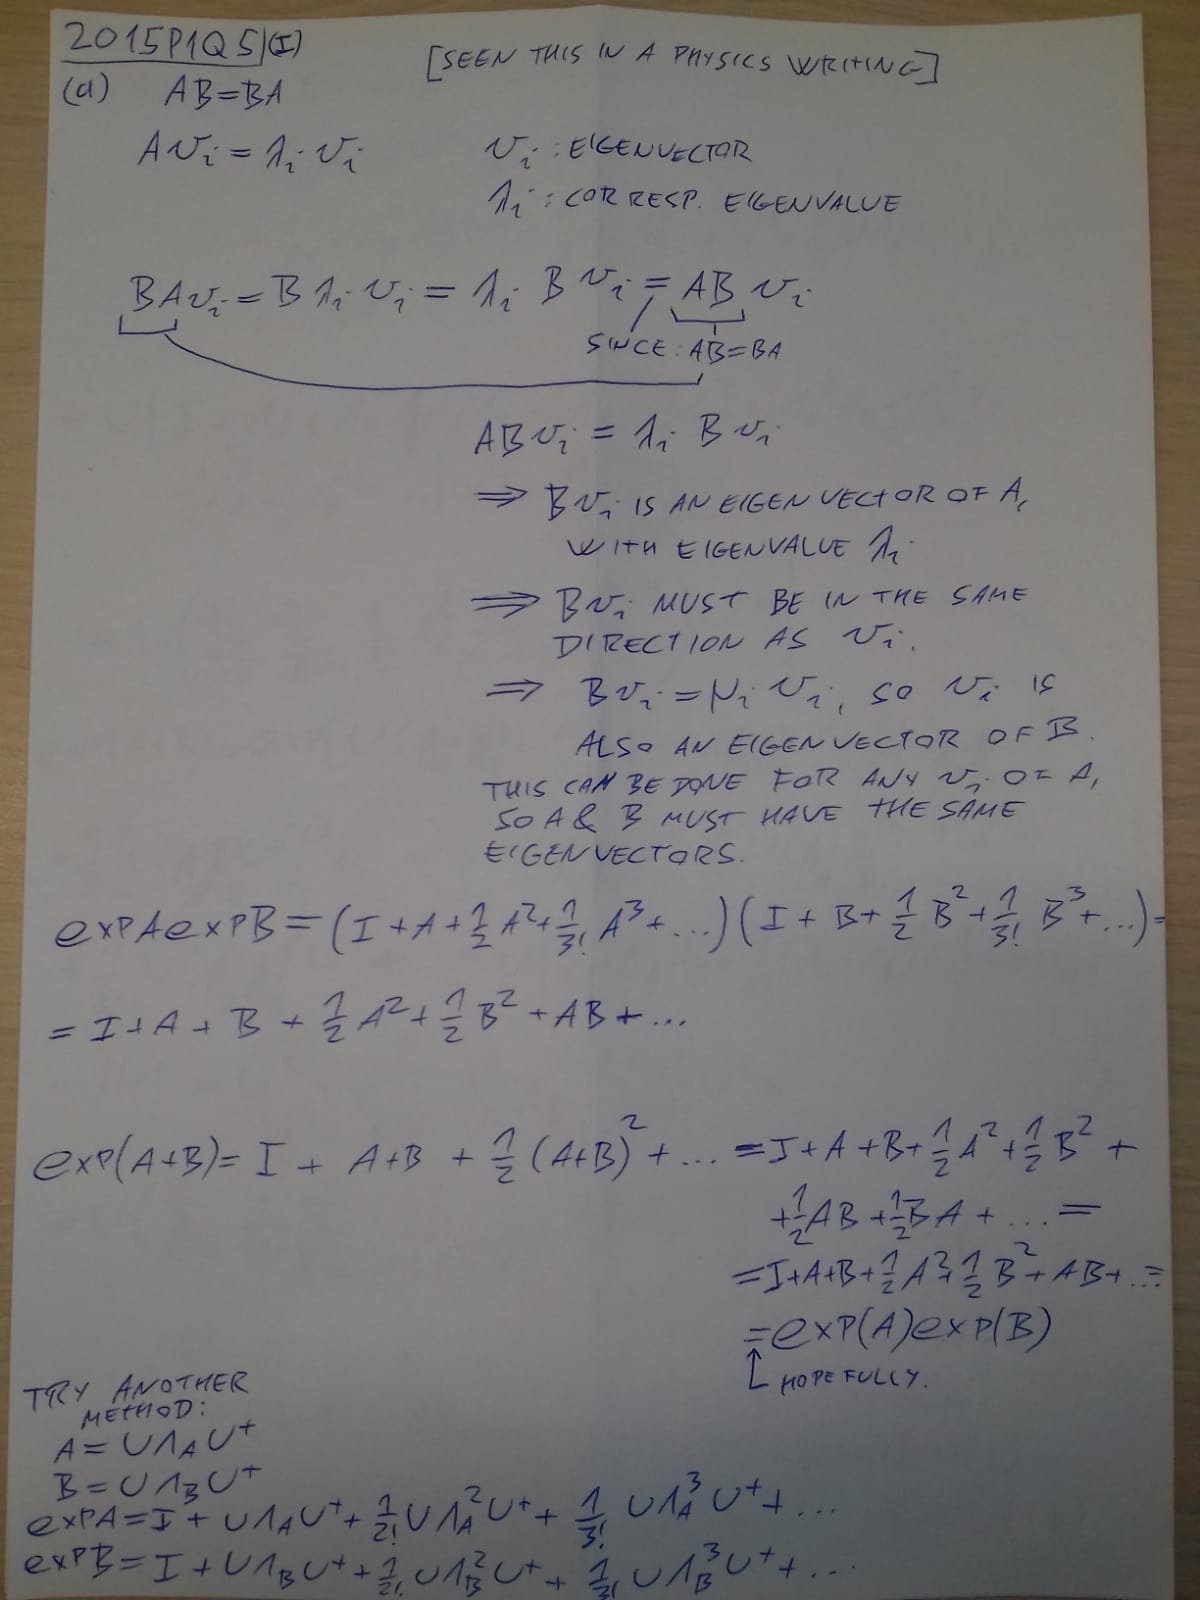 2015P1Q5/(I)
[SEEN THIS IN A PHYSICS WRITING]
(a) AB=BA
Avᵢ = λᵢ vᵢ
vᵢ : EIGENVECTOR
λᵢ : CORRESP. EIGENVALUE
BAvᵢ = Bλᵢ vᵢ = λᵢ B vᵢ = AB vᵢ
SINCE: AB=BA
ABvᵢ = λᵢ B vᵢ
⇒ Bvᵢ IS AN EIGENVECTOR OF A,
WITH EIGENVALUE λᵢ
⇒ Bvᵢ MUST BE IN THE SAME
DIRECTION AS vᵢ.
⇒ Bvᵢ = μᵢ vᵢ, SO vᵢ IS
ALSO AN EIGENVECTOR OF B.
THIS CAN BE DONE FOR ANY vᵢ OF A,
SO A & B MUST HAVE THE SAME
EIGENVECTORS.
expAexpB = (I + A + 1/2 A² + 1/3! A³ + ...) (I + B + 1/2 B² + 1/3! B³ + ...) =
= I + A + B + 1/2 A² + 1/2 B² + AB + ...
exp(A+B) = I + A+B + 1/2 (A+B)² + ... = I + A + B + 1/2 A² + 1/2 B² +
+ 1/2 AB + 1/2 BA + ... =
= I+A+B+ 1/2 A² + 1/2 B² + AB + ... =
= exp(A)exp(B)
↑ HOPEFULLY.
TRY ANOTHER
METHOD:
A = UΛ_A U⁺
B = UΛ_B U⁺
expA = I + UΛ_A U⁺ + 1/2! UΛ_A² U⁺ + 1/3! UΛ_A³ U⁺ + ...
expB = I + UΛ_B U⁺ + 1/2! UΛ_B² U⁺ + 1/3! UΛ_B³ U⁺ + ...